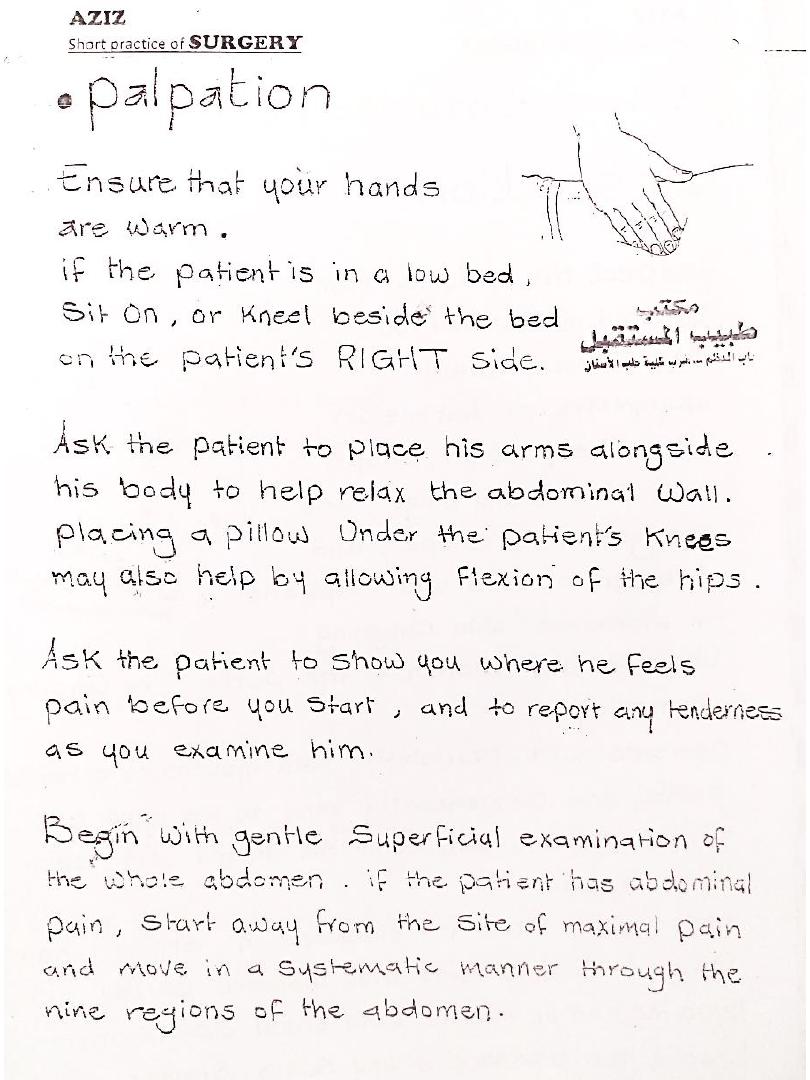 AZIZ
Short practice of SURGERY
• palpation
Ensure that your hands
are warm.
if the patient is in a low bed,
Sit On, or Kneel beside the bed
on the patient's RIGHT side.
مكتب
طبيب المستقبل
باب المعظم ... قرب كلية طب الأسنان
Ask the patient to place his arms alongside
his body to help relax the abdominal Wall.
placing a pillow Under the patient's Knees
may also help by allowing Flexion of the hips.
Ask the patient to show you where he feels
pain before you start, and to report any tenderness
as you examine him.
Begin with gentle Superficial examination of
the whole abdomen. if the patient has abdominal
pain, start away from the Site of maximal pain
and move in a Systematic manner through the
nine regions of the abdomen.